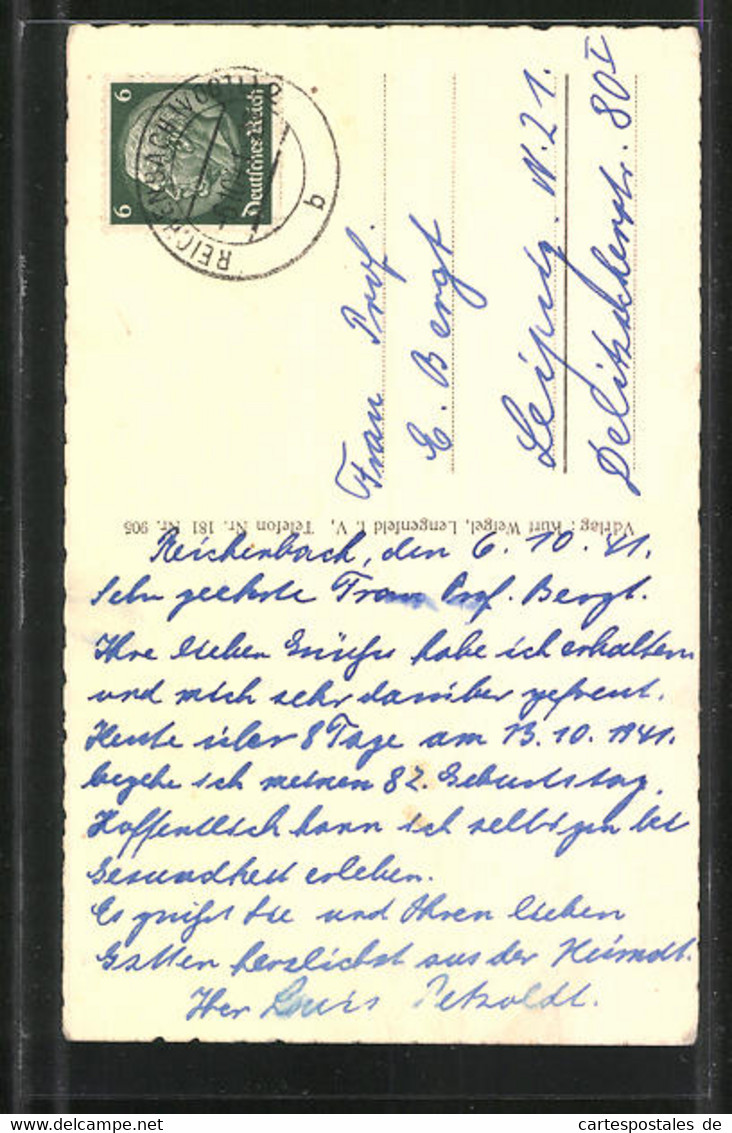 6
6
Deutsches Reich
REICHENBACH (VOGTL)
b
Frau Prof.
E. Bergt
Leipzig. N. 21.
Delitzscherstr. 80 I
Vdrlag: Kurt Weigel, Lengenfeld i. V., Telefon Nr. 181 Nr. 905
Reichenbach, den 6. 10. 41.
Sehr geehrte Frau Prof. Bergt.
Ihre lieben Grüße habe ich erhalten
und mich sehr darüber gefreut.
Heute über 8 Tage am 13. 10. 1941.
begehe ich meinen 82. Geburtstag.
Hoffentlich kann ich selbigen bei
Gesundheit erleben.
Es grüßt Sie und Ihren lieben
Gatten herzlichst aus der Heimat.
Ihr Louis Petzoldt.
cartespostales de